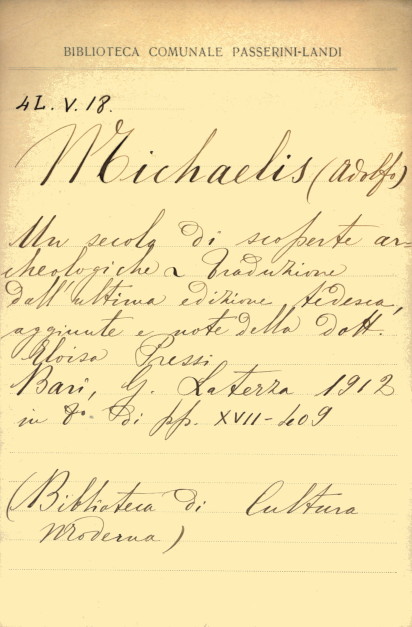 BIBLIOTECA COMUNALE PASSERINI-LANDI
4L. V. 18.
Michaelis (Adolfo)
Un secolo di scoperte ar=
cheologiche ~ Traduzione
dall'ultima edizione tedesca,
aggiunte e note della dott.
Eloisa Pressi
Bari, G. Laterza 1912
in 8° di pp. XVII-409
(Biblioteca di Cultura
Moderna)